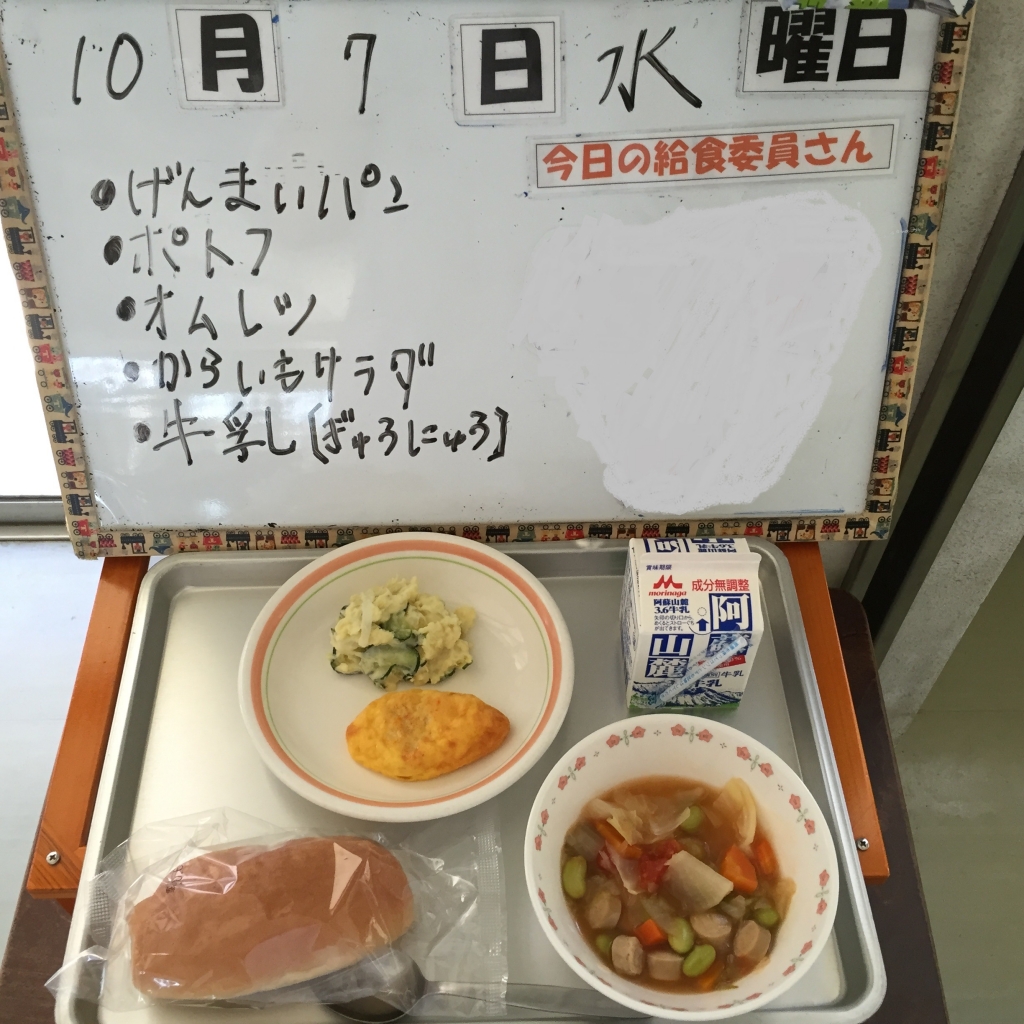 10月7日水曜日
今日の給食委員さん
・げんまいパン
・ポトフ
・オムレツ
・からいもサラダ
・牛乳し[ぎゅうにゅう]
賞味期限
morinaga
成分無調整
阿蘇山麓
3.6牛乳
阿蘇
山麓
牛乳